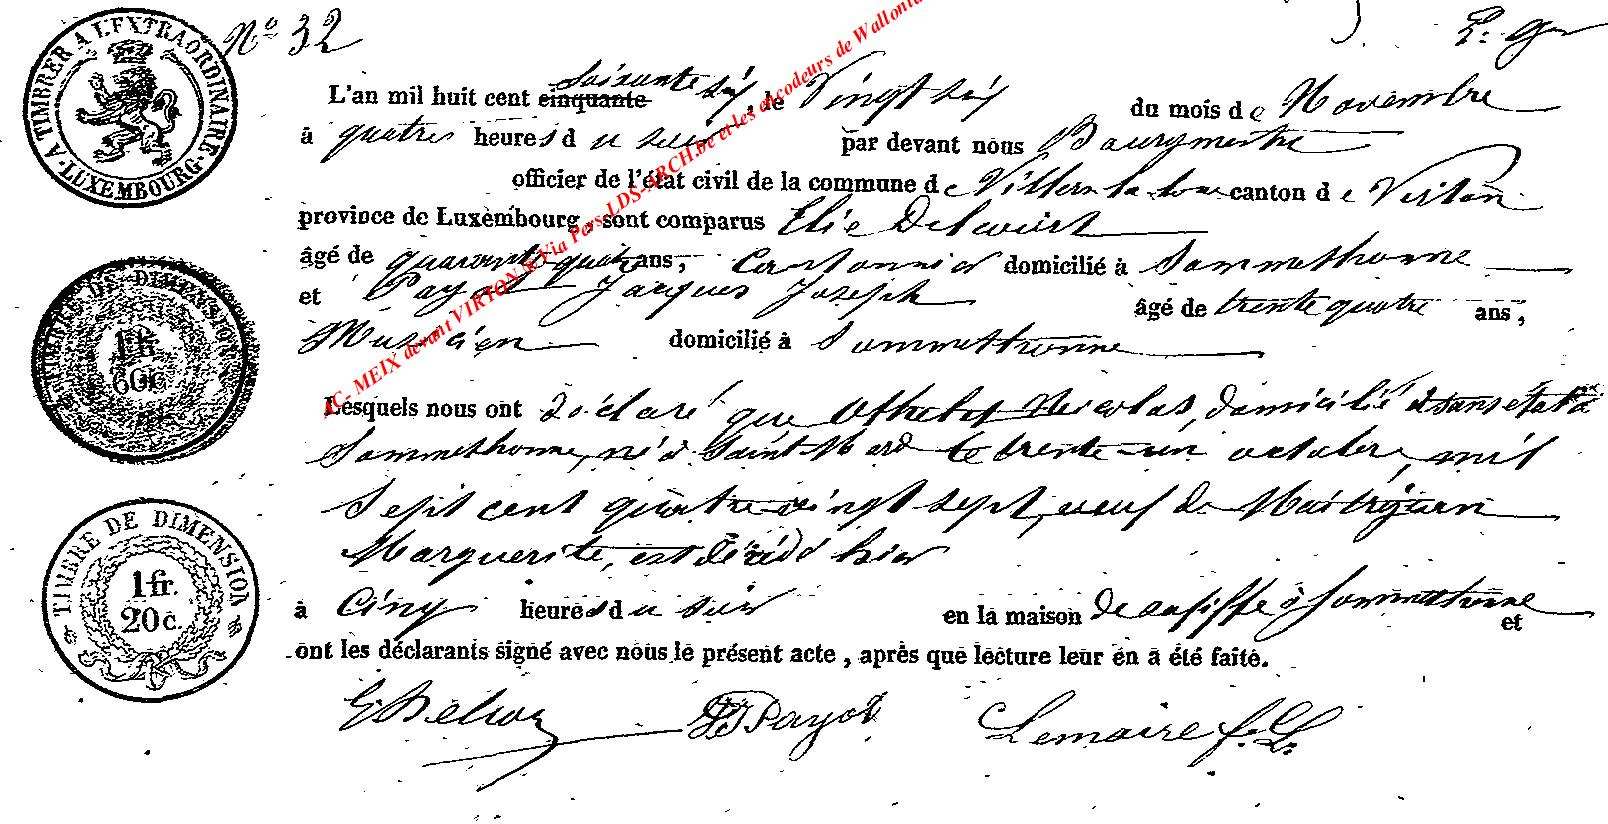 TIMBRER A L'EXTRAORDINAIRE
A · LUXEMBOURG ·
N° 32
L'an mil huit cent cinquante soixante six, de Vingt six du mois de Novembre
à quatre heures du soir par devant nous Bourgmestre
officier de l'état civil de la commune de Villers la loue canton de Virton
province de Luxembourg, sont comparus Elie Delcourt
âgé de quarante quatre ans, Cantonnier domicilié à Sommethonne
et Payot Jacques Joseph âgé de trente quatre ans,
Musicien domicilié à Sommethonne
Lesquels nous ont déclaré que Othelet Nicolas, domicilié et sans état à
Sommethonne, né à Saint Mard le trente-un octobre, mil
Sept cent quatre-vingt sept, veuf de
Marguerite, est décédé hier
à Cinq heures du soir en la maison à Sommethonne
et
ont les déclarants signé avec nous le présent acte, après que lecture leur en a été faite.
JJPayot Lemaire
TIMBRE DE DIMENSION
1 fr.
60 c.
TIMBRE DE DIMENSION
1 fr.
20 c.
AC- MEIX devant VIRTON & Via Pers-LDS-ARCH.be et les encodeurs de Wallonia